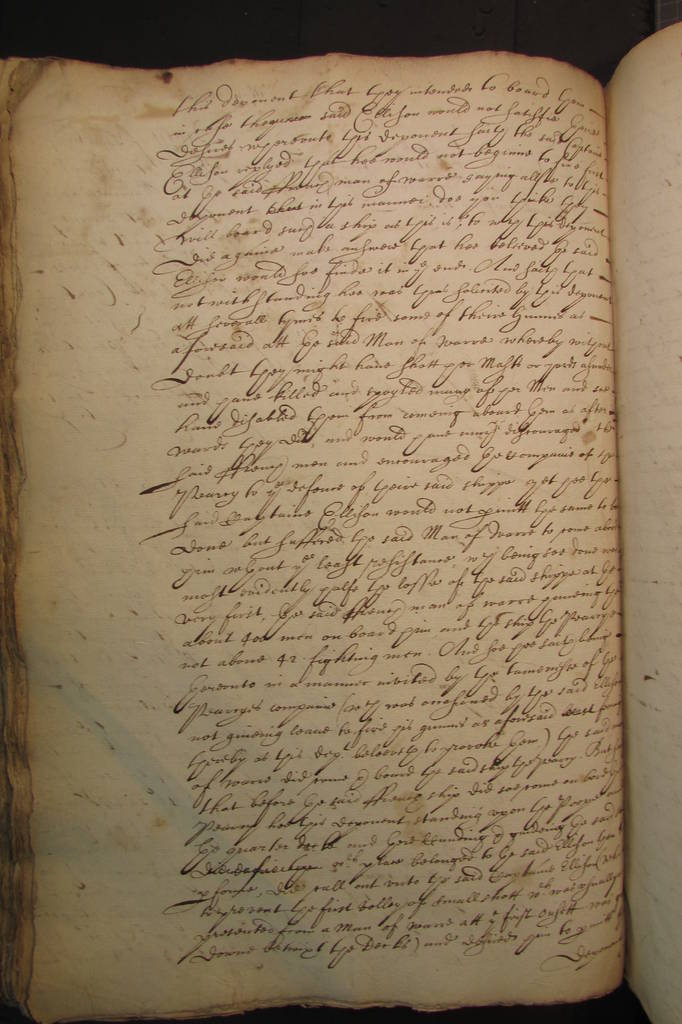 this deponent that they intended to board them
in who thereupon said Ellison would not satisfie theire
desires wherevnto this deponent saith the said Captaine
Ellison replyed that hee would not beginne to fire first
at the said ffrench man of warre saying allsoe to this
deponent that in this manner, doe you thinke they
will board such a ship as this is, to wch this deponent
did againe make answere that hee beleived the said
Ellison would soe finde it in ye end. And saith that
notwithstanding hee was thus solicited by this deponent
att severall tymes to fire some of theire Gunnes as
aforesaid att the said Man of Warre whereby without
doubt they might have shott her Masts or yards asunder
and have killed and spoyled many of her Men and soe
have disabled them from comeing aboard them as after
wards they did, and would have much discouraged the
said ffrench men and encouraged the companie of the
Pearry to ye defence of theire said shippe yet hee the
said Captaine Ellison would not permitt the same to be
done but suffered the said Man of Warre to come aboard
him wthout ye least resistance, wch being soe done was
most evidently halfe the losse of the said shippe at the
very first, the said ffrench man of warre haveing
about 400 men on board him and the ship the Pearrye
not above 42 fighting men. And hee saith being
therevnto in a manner invited by the tamenesse of the
Pearryes companie (wch was occasioned by the said Ellison
not giveing leave to fire his gunnes as aforesaid
thereby as this dept beleeveth to provoke them) the said
of warre did come on board the said ship the Pearry. But
that before the said ffrench ship did soe come on board
Pearry hee this deponent standing upon the Poope
the quarter deck and there Cunding & guideing the said
wch place belonged to the said Ellison
did call out vnto the said Captaine Ellison
to prevent the first volley of small shott wch was usually
presented from a Man of Warre att ye first onsett was
downe betwixt the Decks) and desired him to permitt
Deponent